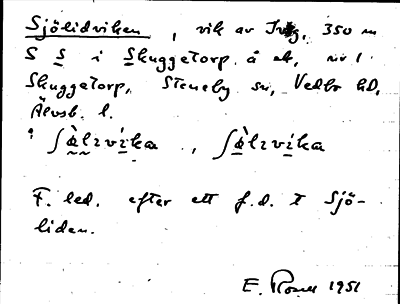 Sjölidviken, vik av Ivåg, 350 m
S S i Skuggetorp å ek, nv l
Skuggetorp, Steneby sn, Vedbo hD,
Älvsb. l.
i ʃɷ̀lɪvíka, ʃɷ̀lɪvíka
F. led. efter ett f.d. t Sjö-
liden.
E. Rosell 1951